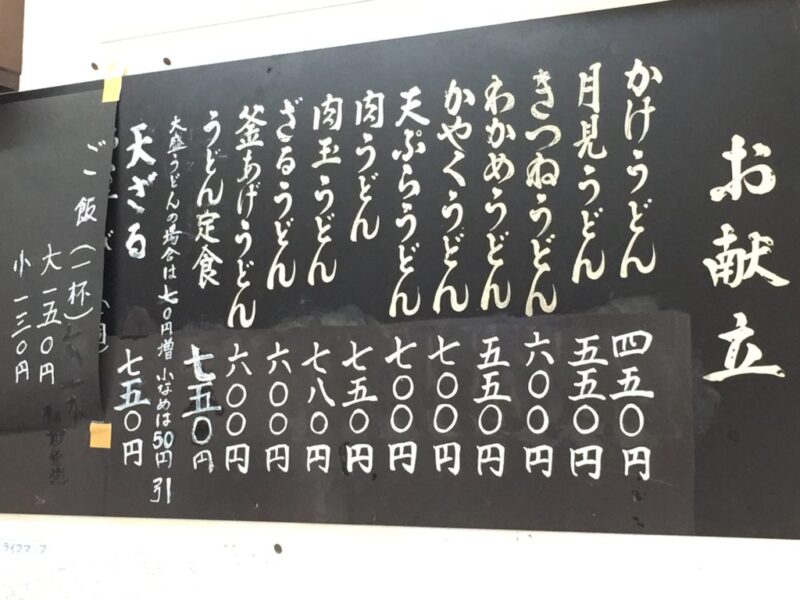 お献立
かけうどん 四五〇円
月見うどん 五五〇円
きつねうどん 六〇〇円
わかめうどん 五五〇円
かやくうどん 七〇〇円
天ぷらうどん 七〇〇円
肉うどん 七五〇円
肉玉うどん 七八〇円
ざるうどん 六〇〇円
釜あげうどん 六〇〇円
うどん定食 七五〇円
大盛うどんの場合は七〇円増 小なめは50円引
天ざる 七五〇円
ご飯(一杯)
大 一五〇円
小 一三〇円
ライフマップ